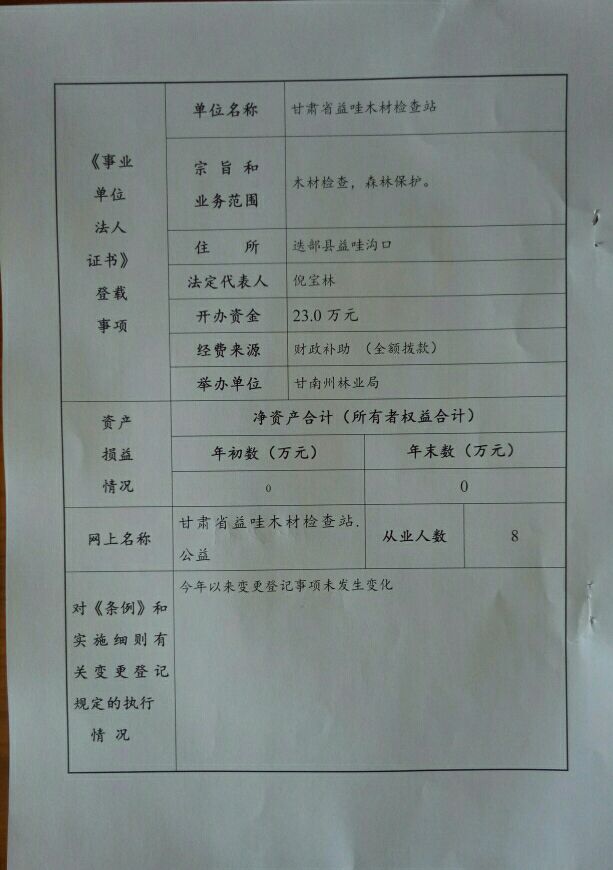 《事业
单位
法人
证书》
登载
事项
单位名称
甘肃省益哇木材检查站
宗旨和
业务范围
木材检查，森林保护。
住所
迭部县益哇沟口
法定代表人
倪宝林
开办资金
23.0 万元
经费来源
财政补助 （全额拨款）
举办单位
甘南州林业局
资产
损益
情况
净资产合计（所有者权益合计）
年初数（万元）
年末数（万元）
0
0
网上名称
甘肃省益哇木材检查站.
公益
从业人数
8
对《条例》和
实施细则有
关变更登记
规定的执行
情况
今年以来变更登记事项未发生变化